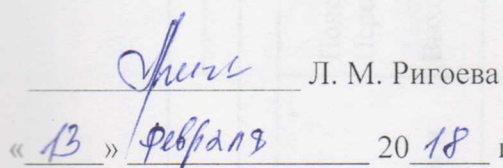 Л. М. Ригоева
« 13 » февраля 2018 г